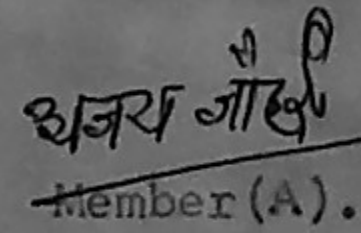 अजय जौहरी
Member(A).